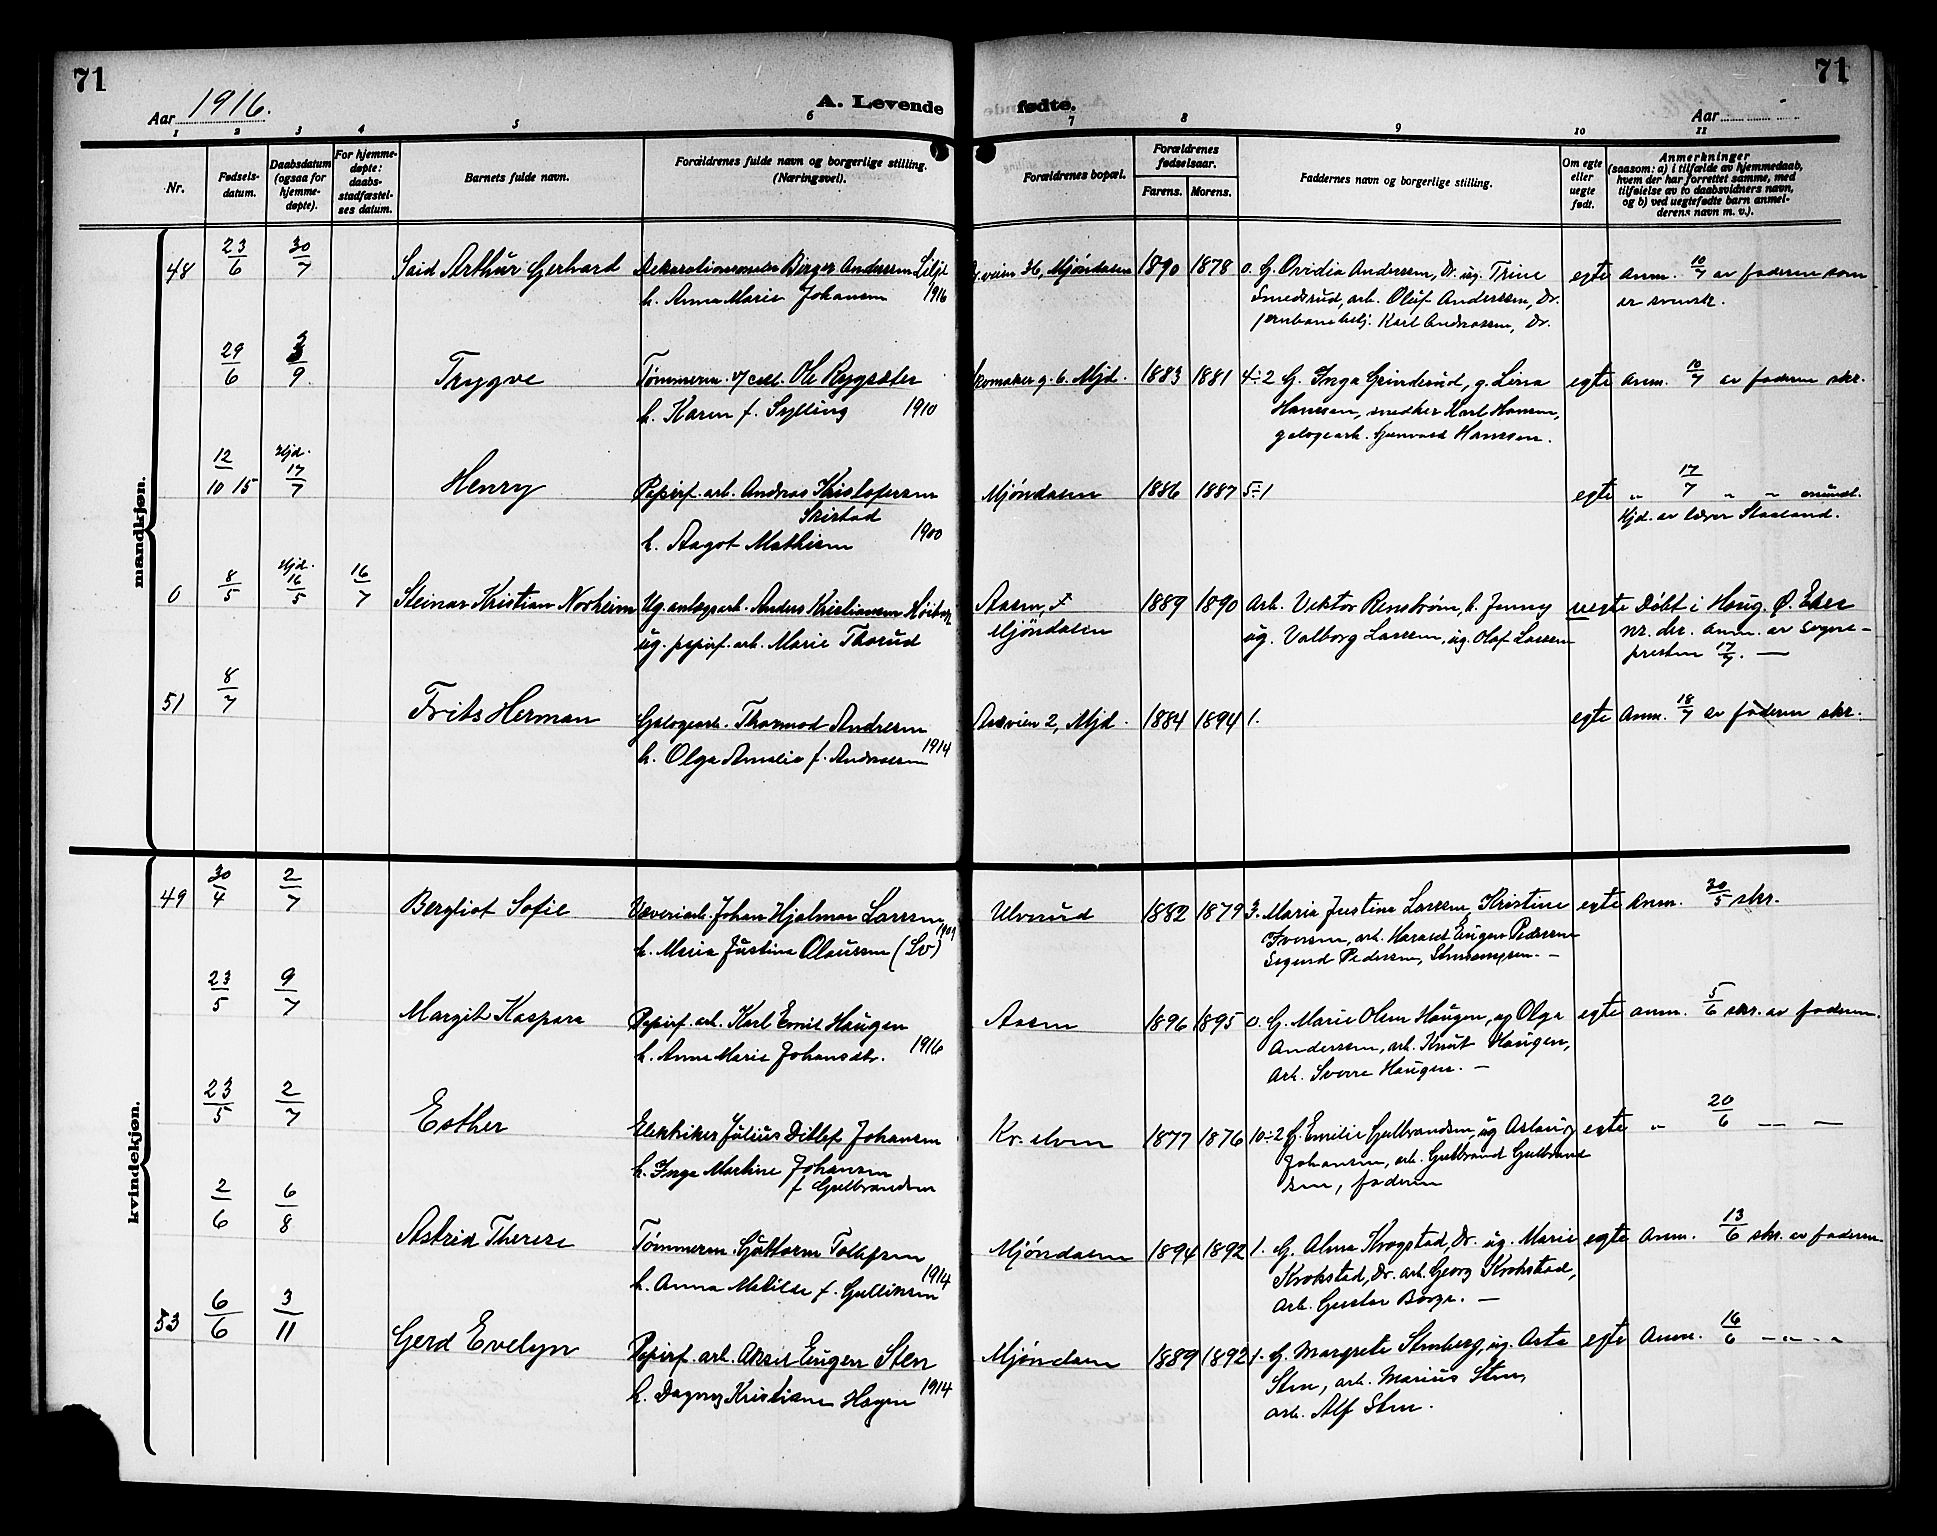 71
71
Aar 1916.
A. Levende
fødte.
Aar
1 2 3 4 5 6 7 8 9 10 11
Nr.
Fødsels-
datum.
Daabsdatum
(ogsaa for
hjemme-
døpte).
For hjemme-
døpte:
daabs-
stadfæstel-
ses datum.
Barnets fulde navn.
Forældrenes fulde navn og borgerlige stilling.
(Næringsvei).
Forældrenes bopæl.
Forældrenes
fødselsaar.
Farens. Morens.
Faddernes navn og borgerlige stilling.
Om egte
eller
uegte
født.
Anmerkninger
(saasom: a) i tilfælde av hjemmedaab,
hvem der har forrettet samme, med
tilføielse av to daabsvidners navn,
og b) ved uegtefødte barn anmel-
derens navn m. v.).
mandkjøn.
48 23/6 30/7 Said Arthur Gerhard Dekorationsmaler Birger Anderssen Lilje 36, Mjøndalen 1890 1878 0. G. Ovidia Anderssen, Dr. ug. Trine egte anm. 10/7 av faderen som
h. Anna Marie Johansen 1916 Smedsrud, arb. Oluf Anderssen, Dr. er svensk.
jernbanebetj. Karl Andreassen, Dr.
29/6 3/9 Trygve Tømmerm. Ole Rygsæter g. 6. Mjd. 1883 1881 4÷2 G. Inga Grindsrud, g. Lina egte anm. 10/7 av faderen skr.
h. Karen f. Sylling 1910 Hanssen, snedker Karl Hansen,
galogearb. Hanssen.
12/10 15 Hjd. 17/7 Henry Papirf. arb. Andreas Kristofersen Mjøndalen 1886 1887 5÷1 egte " 17/7 " " mundt.
Skistad Hjd. av lærer Staaland.
h. Aagot Mathisen 1900
0 8/5 Hjd. 16/5 16/7 Steinar Kristian Norheim Ug. anlægsarb. Anders Kristiansen Aasen, f 1889 1890 Arb. Viktor Renstrøm, h. Jenny uegte Døbt i Haug, Ø. Eker
ug. papirf. arb. Marie Thorud Mjøndalen ug. Valborg Larssen, ug. Olaf Larssen nr. der. anm. av sogne-
presten 17/7. —
51 8/7 Frits Herman Galogearb. Thormod Andresen Aasveien 2, Mjd. 1884 1894 1. egte anm. 18/7 av faderen skr.
h. Olga Amalie f. Andreassen 1914
kvindekjøn.
49 30/4 2/7 Bergliot Sofie Væveriarb. Johan Hjalmar Larssen Ulverud 1882 1879 3. Maria Justina Larssen, Kristine egte anm. 30/5 skr.
h. Maria Justina Olaussen (Sv) Iversen, arb. Harald Eugen Pedersen
Sigurd Pedersen, —
23/5 9/7 Margit Kaspara Papirf. arb. Karl Emil Haugen Aasen 1896 1895 0. G. Marie Olsen Haugen, ug Olga egte anm. 5/6 skr. av faderen.
h. Anne Marie Johansdtr. 1916 Anderssen, arb. Knut Haugen,
arb. Sverre Haugen. —
23/5 2/7 Esther Elektriker Julius Ditlef Johansen Kr. elven 1877 1876 10÷2 G. Emilie Gulbrandsen, ug Aslaug egte " 20/6 — —
h. Inga Martine Johansen Johansen, arb. Gulbrand Gulbrand
f Gulbrandsen sen, faderen
2/6 6/8 Astrid Therese Tømmerm. Guttorm Tollefsen Mjøndalen 1894 1892 1. G. Alma Krogstad, Dr. ug. Marie egte anm. 13/6 skr. av faderen
h. Anna Matilde f. Gulliksen 1914 Krokstad, Dr. arb. Georg Krokstad,
arb. Gustav Borge. —
53 6/6 3/11 Gerd Evelyn Papirf. arb. Aksel Eugen Sten Mjøndalen 1889 1892 1. G. Margrete Stenberg, ug. Asta egte anm. 16/6 — " — "
h. Dagny Kristiane Hagen 1914 Sten, arb. Marius Sten,
arb. Alf Sten.